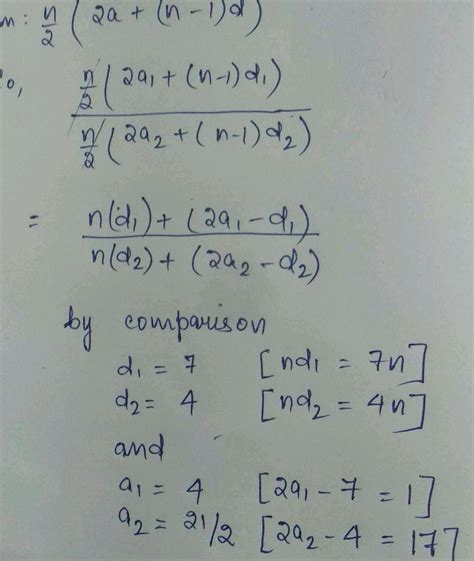 m: n/2 ( 2a + (n-1)d )
so, n/2 ( 2a₁ + (n-1)d₁ )
n/2 ( 2a₂ + (n-1)d₂ )
= n(d₁) + (2a₁ - d₁)
n(d₂) + (2a₂ - d₂)
by comparison
d₁ = 7 [nd₁ = 7n]
d₂ = 4 [nd₂ = 4n]
and
a₁ = 4 [2a₁ - 7 = 1]
a₂ = 21/2 [2a₂ - 4 = 17]